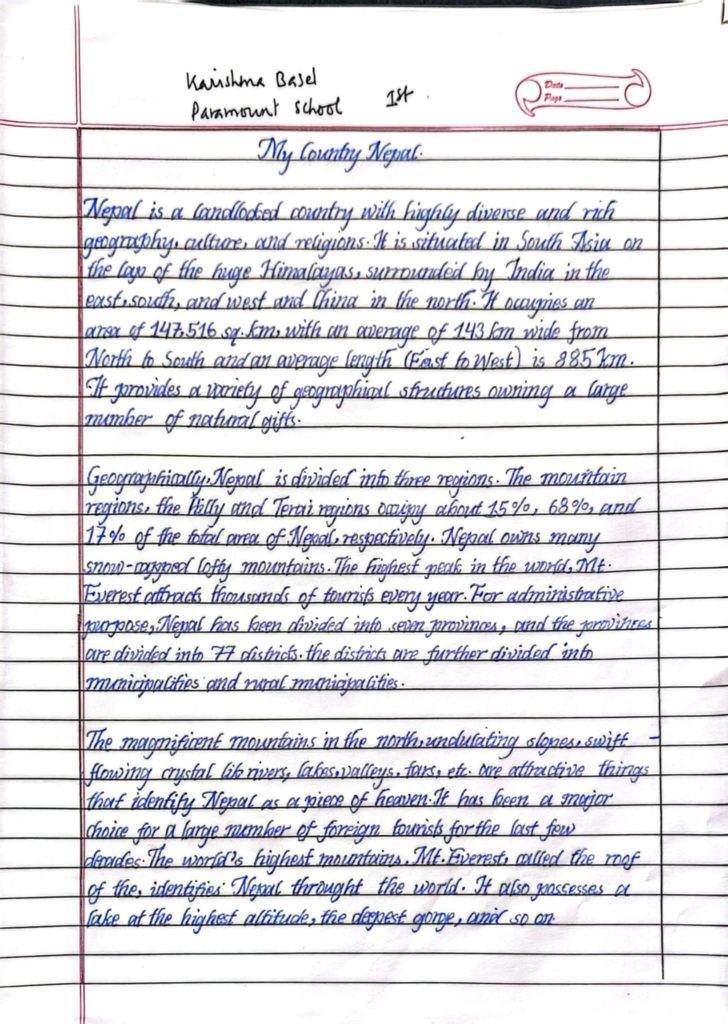 Karishma Basel
Paramount School 1st.
Date
Page
My Country Nepal.
Nepal is a landlocked country with highly diverse and rich
geography, culture, and religions. It is situated in South Asia on
the lap of the huge Himalayas, surrounded by India in the
east, south, and west and China in the north. It occupies an
area of 147,516 sq. km, with an average of 143 km wide from
North to South and an average length (East to West) is 885 km.
It provides a variety of geographical structures owning a large
number of natural gifts.
Geographically, Nepal is divided into three regions. The mountain
regions, the Hilly and Terai regions occupy about 15%, 68%, and
17% of the total area of Nepal, respectively. Nepal owns many
snow-capped lofty mountains. The highest peak in the world, Mt.
Everest attracts thousands of tourists every year. For administrative
purpose, Nepal has been divided into seven provinces, and the provinces
are divided into 77 districts. the districts are further divided into
municipalities and rural municipalities.
The magnificent mountains in the north, undulating slopes, swift -
flowing crystal lik rivers, lakes, valleys, fars, etc. are attractive things
that identify Nepal as a piece of heaven. It has been a major
choice for a large number of foreign tourists for the last few
decades. The world's highest mountains, Mt. Everest, called the roof
of the, identifies Nepal throught the world. It also possesses a
lake at the highest altitude, the deepest gorge, and so on